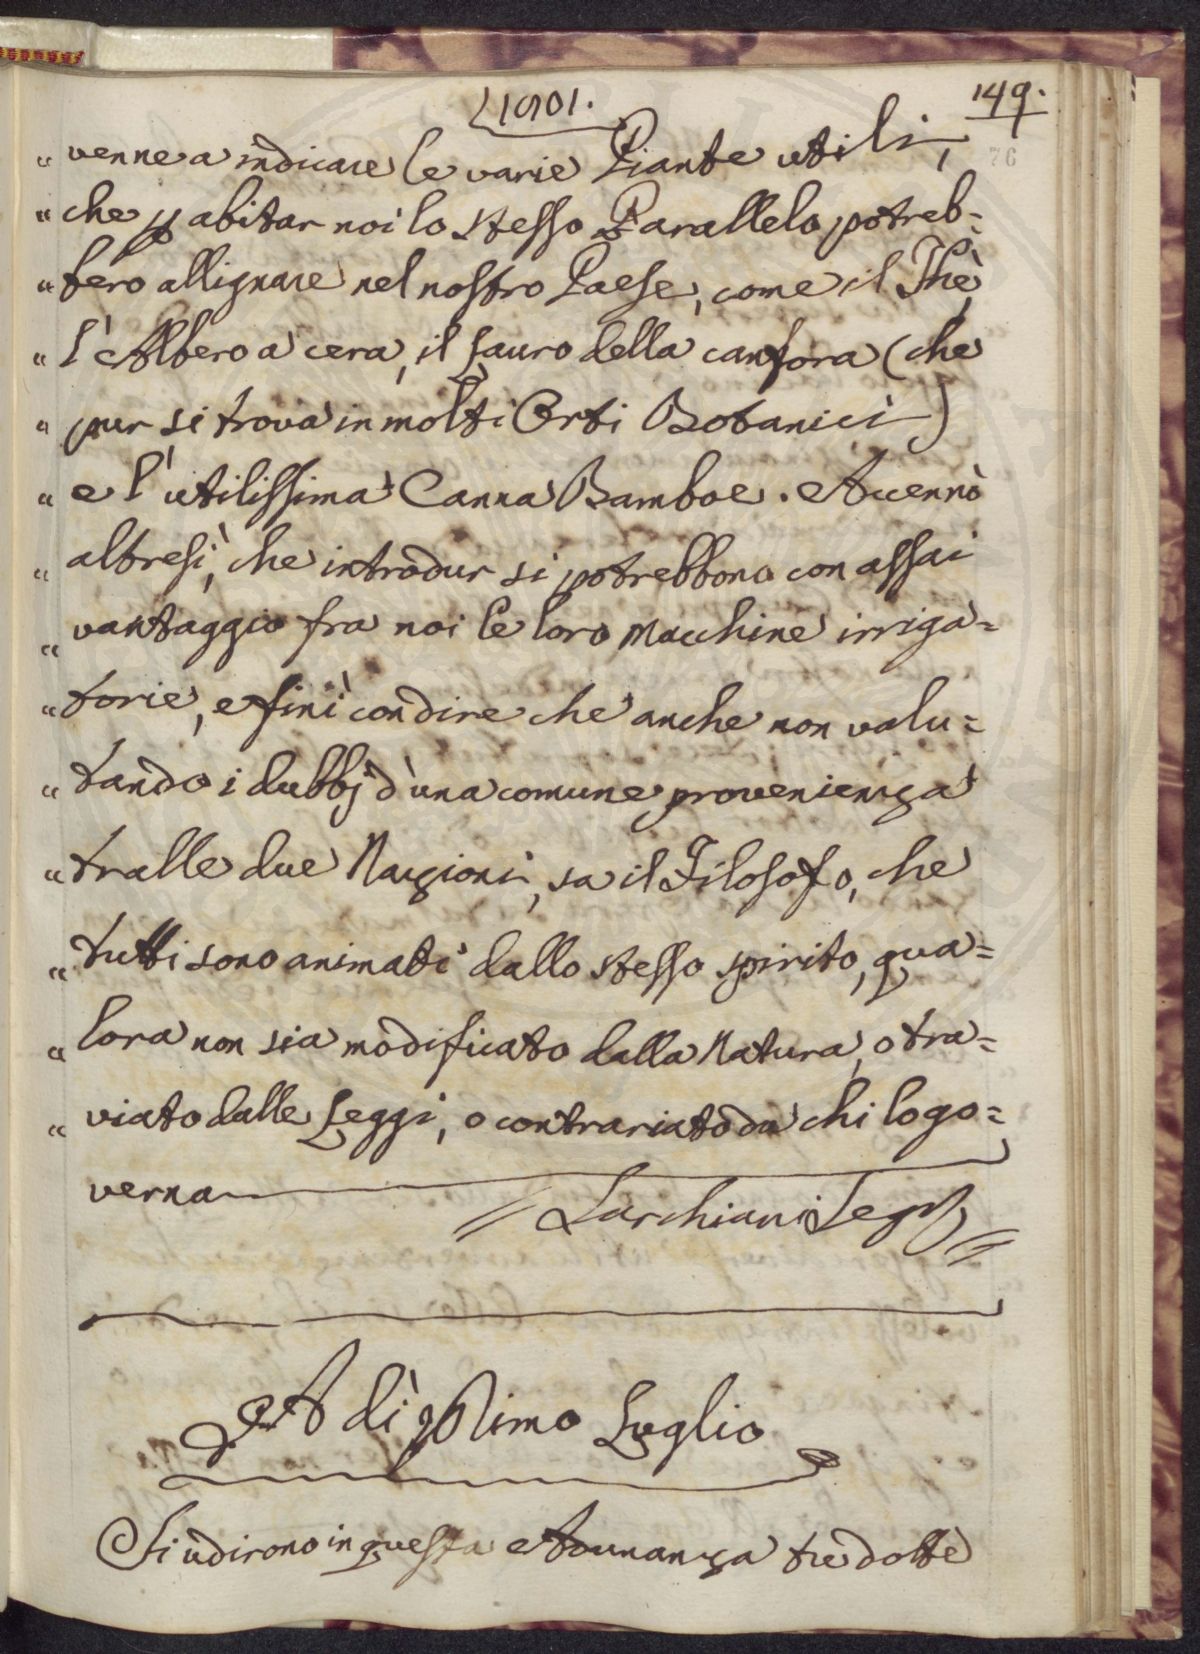 1801.
149.
76
" venne a indicare le varie Piante utili,
" che p abitar noi lo stesso Parallelo potreb=
" bero allignare nel nostro Paese, come il Thè,
" l'Albero a cera, il Lauro della canfora (che
" pur si trova in molti Orti Botanici)
" e l'utilissima Canna Bamboe. Accennò
" altresì, che introdur si potrebbono con assai
" vantaggio fra noi le loro Macchine irriga=
" torie, e finì con dire che anche non valu=
" tando i dubbj d'una comune provenienza
" tralle due Nazioni, sa il Filosofo, che
" tutti sono animati dallo stesso spirito, qua=
" lora non sia modificato dalla Natura, o tra=
" viato dalle Leggi, o contrariato da chi lo go=
verna
// Larchiani Seg.
A dì Primo Luglio
Si udirono in questa Adunanza tre dotte